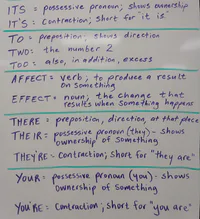 ITS = possessive pronoun; shows ownership
IT'S = Contraction; short for it is
TO = preposition, shows direction
TWO: the number 2
TOO: also, in addition, excess
AFFECT = verb, to produce a result
on something
EFFECT: noun; the change that
results when something happens
THERE = preposition, direction, at that place
THEIR: possessive pronoun (they) - shows
ownership of something
THEY'RE - Contraction; short for "they are"
YOUR = possessive pronoun (you) - shows
ownership of something
YOU'RE: Contraction; short for "you are"